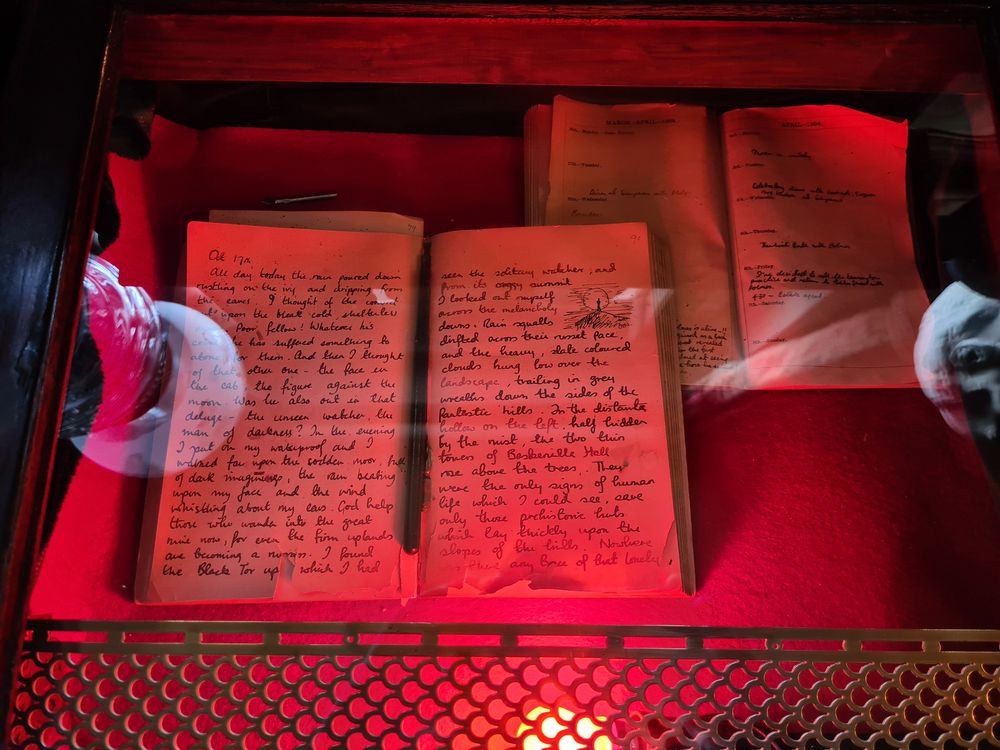 Oct 17th
All day today the rain poured down
rustling on the ivy and dripping from
the eaves. I thought of the
upon the bleak cold shelterless
Poor fellow! Whatever his
he has suffered something to
for them. And then I thought
of that other one - the face in
the cab, the figure against the
moon. Was he also out in that
deluge - the unseen watcher, the
man of darkness? In the evening
I put on my waterproof and I
walked far upon the sodden moor, full
of dark imaginings, the rain beating
upon my face and the wind
whistling about my ears. God help
those who wander into the great
mire now, for even the firm uplands
are becoming a morass. I found
the Black Tor upon which I had
91
seen the solitary watcher, and
from its craggy summit
I looked out myself
across the melancholy
downs. Rain squalls
drifted across their russet face,
and the heavy, slate coloured
clouds hung low over the
landscape, trailing in grey
wreaths down the sides of the
fantastic hills. In the distant
hollow on the left, half hidden
by the mist, the two thin
towers of Baskerville Hall
rose above the trees. They
were the only signs of human
life which I could see, save
only those prehistoric huts
which lay thickly upon the
slopes of the hills. Nowhere
was there any trace of that lonely
MARCH-APRIL-1894
Dine at Simpsons with
APRIL-1894
Turkish Bath with Holmes